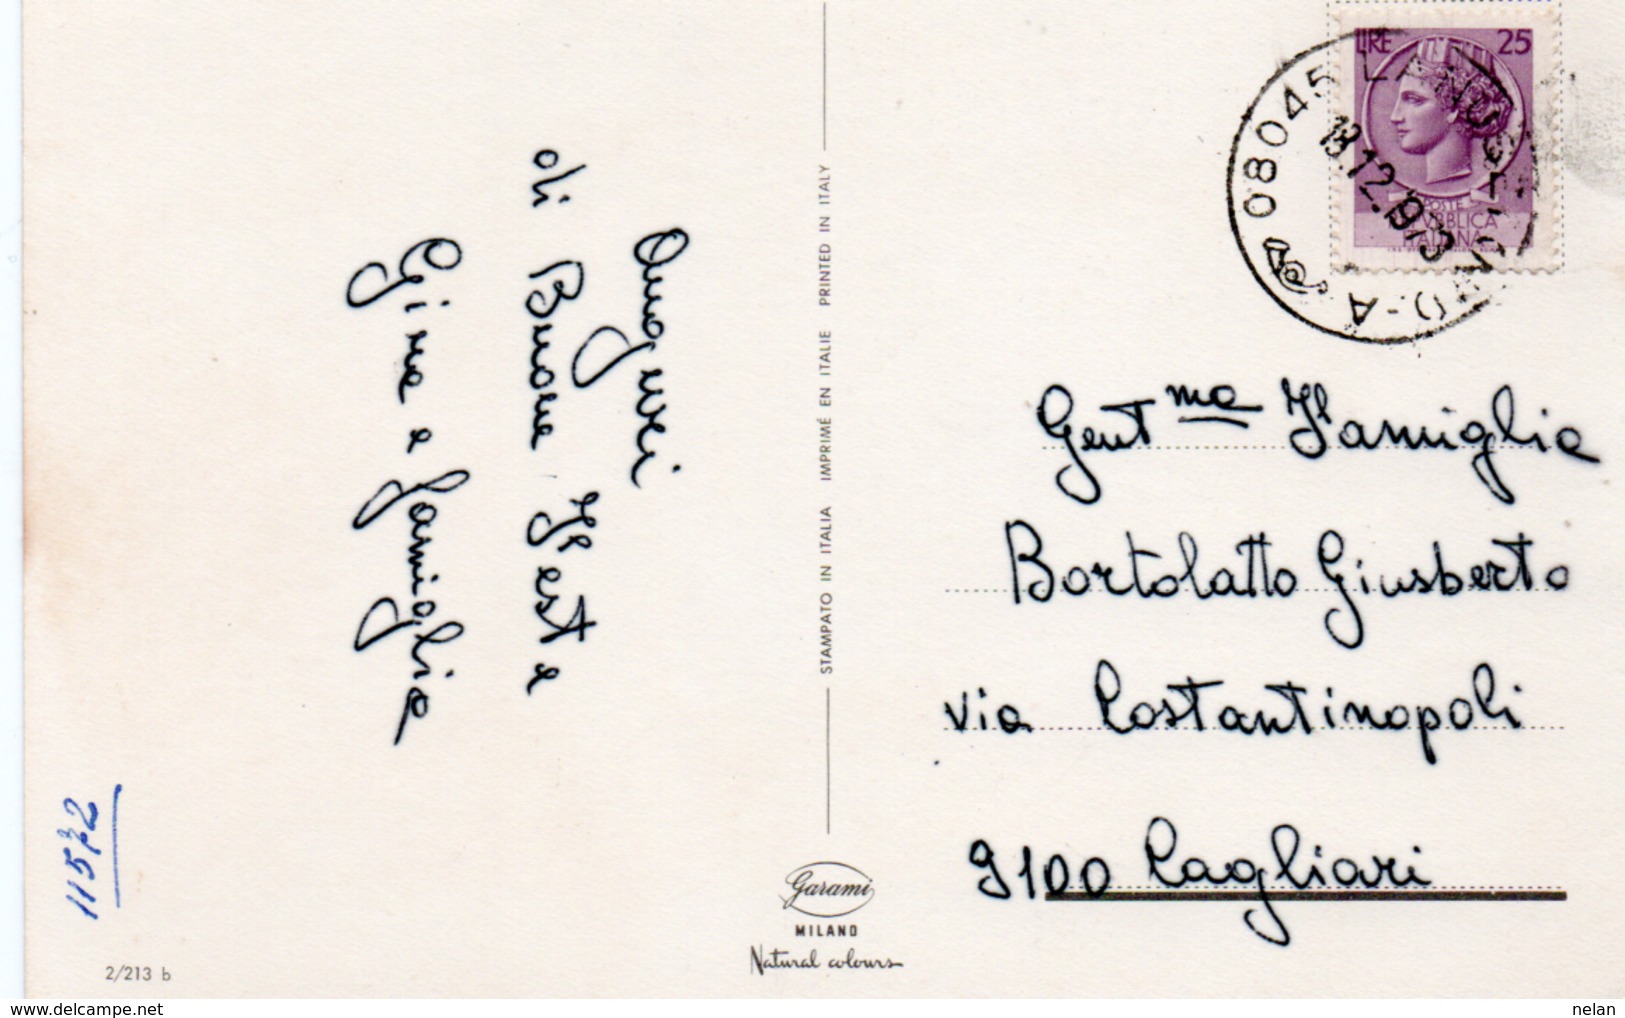 Auguri
di Buone Feste
Gina e famiglia
11572
2/213 b
STAMPATO IN ITALIA IMPRIMÉ EN ITALIE PRINTED IN ITALY
Garami
MILANO
Natural colours
LIRE 25
POSTE
REPUBBLICA
ITALIANA
08045 LANUSEI
13.12.1973
Gent.ma Famiglia
Bortolatto Giusberto
via Costantinopoli
9100 Cagliari
nelan